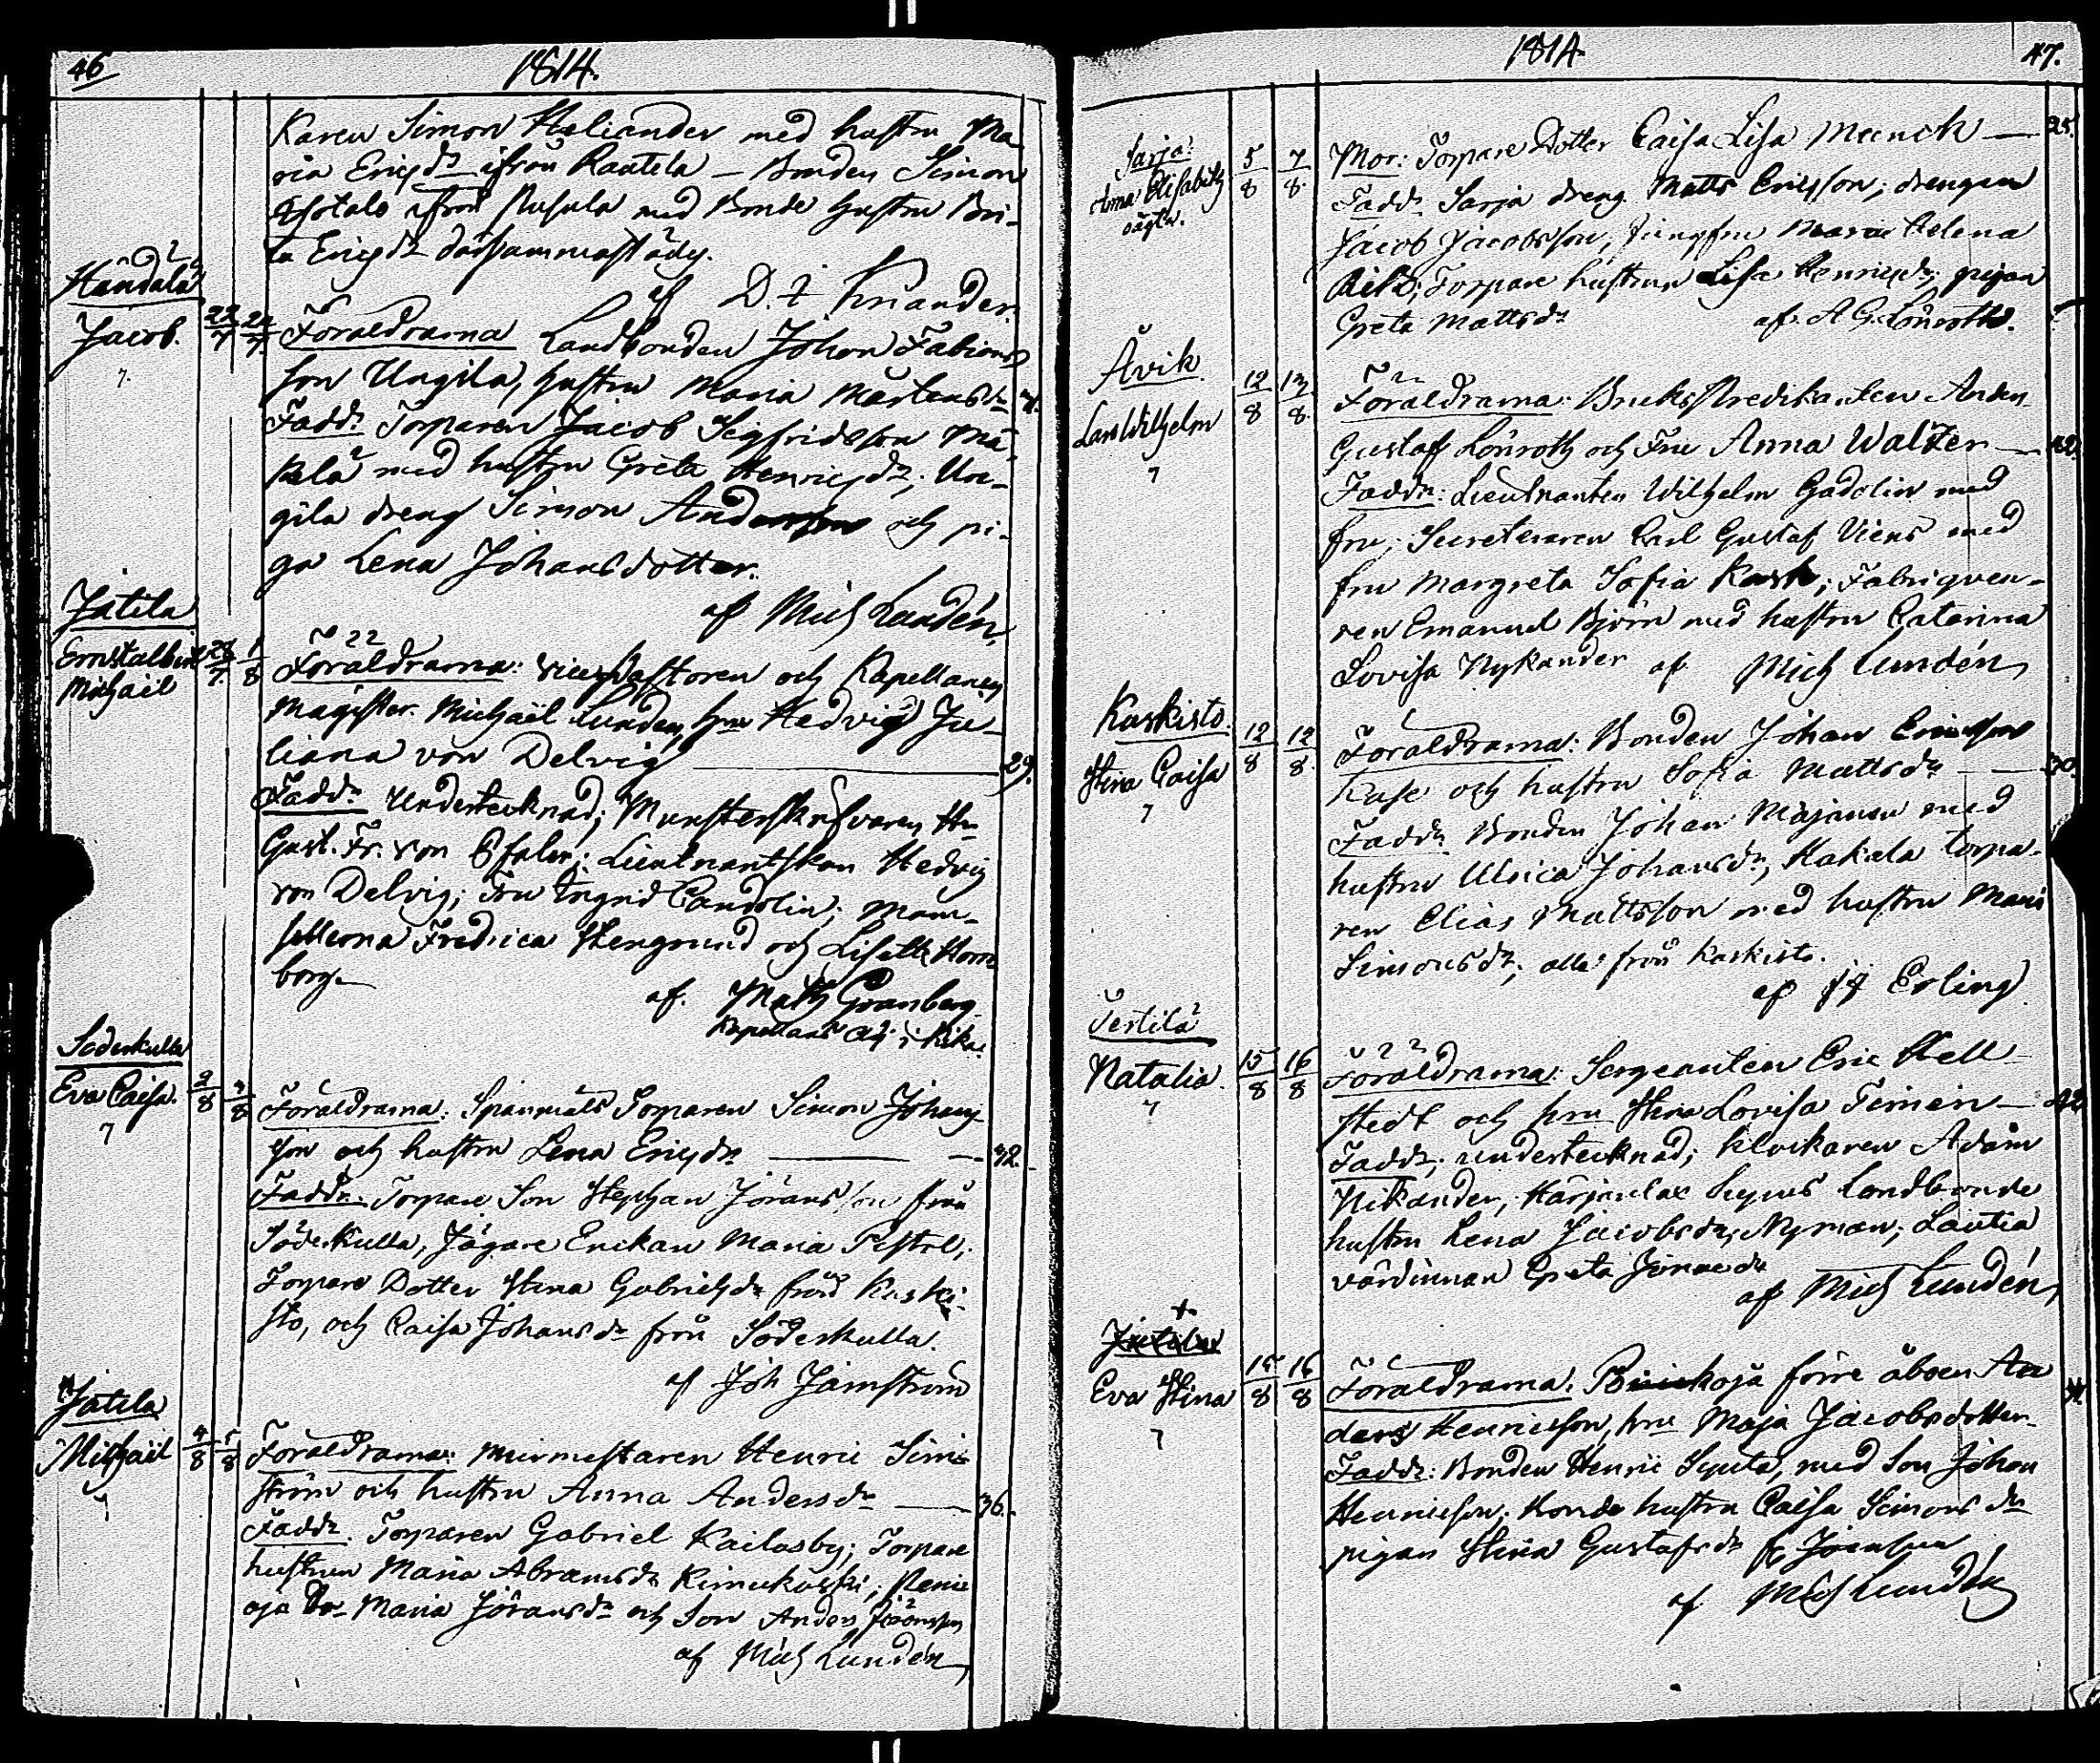 46
1814.
Karen Simon Heliander med hustru Ma-
ria Ericsdr ifrån Raatela – Bonden Simon
ifrån Pusula med Bonde hustru Bri-
ta Ericsdr därsammastädes.
af D. I. Krander.
Handala
Jacob. 22/7 24/7 Föräldrarna Landbonden Johan Fabians
son Ungila, hustru Maria Mårtensdr
Fadd: Torparen Jacob Sigfridsson Mä-
kelä med hustru Greta Henricsdr; Un-
gila dreng Simon Andersson och pi-
ga Lena Johansdotter.
af Mich Lundén
Jätila
Ernst Albin 1/8 Föräldrarna: Vice Pastoren och Kapellanen
Michaël
Magister Michaël Lundén, hru Hedvig Ju-
liana von Delvig — 29.
Fadd: Undertecknad; Munsterskrifvaren Hr
Gust. Fr. von Pfaler; Lieutnantskan Hedvig
von Delvig; Fru Ingrid Candolin; Mam-
sellerna Fredrica Stengrund och Lisette Horn-
borg.
af. Math Granberg
Kapellans Adj. i
Söderkulla
Eva Caisa. 2/8 3/8 Föräldrarna: Spanmäls Torparen Simon Johans-
son och hustru Lena Ericsdr — 32.
Fadd: Torpare Son Stephan Jöransson från
Söderkulla, Jägare Enkan Maria Pistol;
Torpare Dotter Stina Gabrielsdr från Kaski-
sto, och Caisa Johansdr från Söderkulla.
af Joh Järnström
Jätila
Michaël 4/8 5/8 Föräldrarna: Murmestaren Henric Sim-
ström och hustru Anna Andersdr — 36.
Fadd: Torparen Gabriel Kailasby; Torpare
hustrun Maria Abramsdr Kimukäski;
oja Maria Jöransdr och Son Anders Jöransson
af Mich Lundén
1814.
47.
Sarja
Anna Elisabeth
oägta.
5/8 7/8 Mor: Torpare Dotter Caisa Lisa Munck — 25.
Fadd: Sarja dreng Matts Ericsson; drengen
Jacob Jacobsson, Jungfru Maria Helena
Torpare hustrun Lisa Henricsdr; pigan
Greta Mattsdr af. A G. Lönroth.
Åvik
Lars Wilhelm 12/8 13/8 Föräldrarna: Bruks Predikanten Anders
Gustaf Lönroth och Fru Anna Walter —
Fadd: Lieutnanten Wilhelm Gadolin med
fru; Secreteraren Carl Gustaf Viens med
fru Margreta Sofia Rask; Fabriqueu-
ren Emanuel Björn med hustru Catarina
Lovisa Nykander af Mich Lundén
Kaskisto.
Stina Caisa 12/8 12/8 Föräldrarna: Bonden Johan Ericsson
Kase och hustru Sofia Mattsdr — 30.
Fadd: Bonden Johan Majanen med
hustru Ulrica Johansdr, Kakala torpa-
ren Elias Mattsson med hustru Maria
Simonsdr; alla från Kaskisto.
af Erling
Vestilä
Natalia. 15/8 16/8 Föräldrarna: Sergeanten Eric Hell-
stedt och hru Stina Lovisa Timen — 42
Fadd: undertecknad; klockaren Adam
Nikander, Härjanlax Sigurs Landbonde
hustru Lena Jacobsdr Nyman; Lautia
värdinnan Greta
af Mich Lundén
Jätila
Eva Stina 15/8 16/8 Föräldrarna: förre åboen An
ders Henricsson, hru Maja Jacobsdotter
Fadd: Bonden Henric Sipilä, med Son Johan
Henricsson; Bonde hustru Caisa Simonsdr
pigan Stina Gustafsdr fr
af Mich Lundén